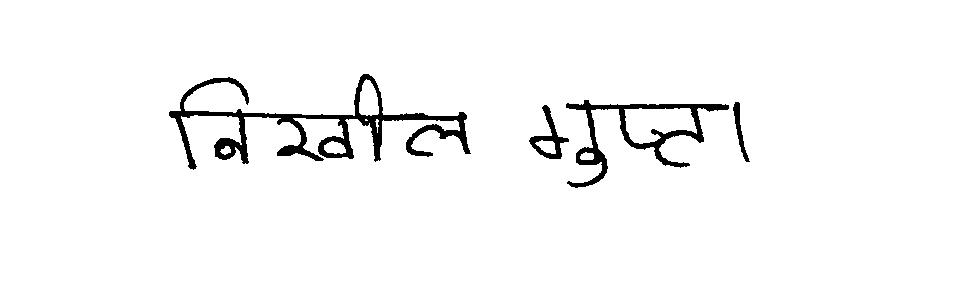 निखील गुप्ता